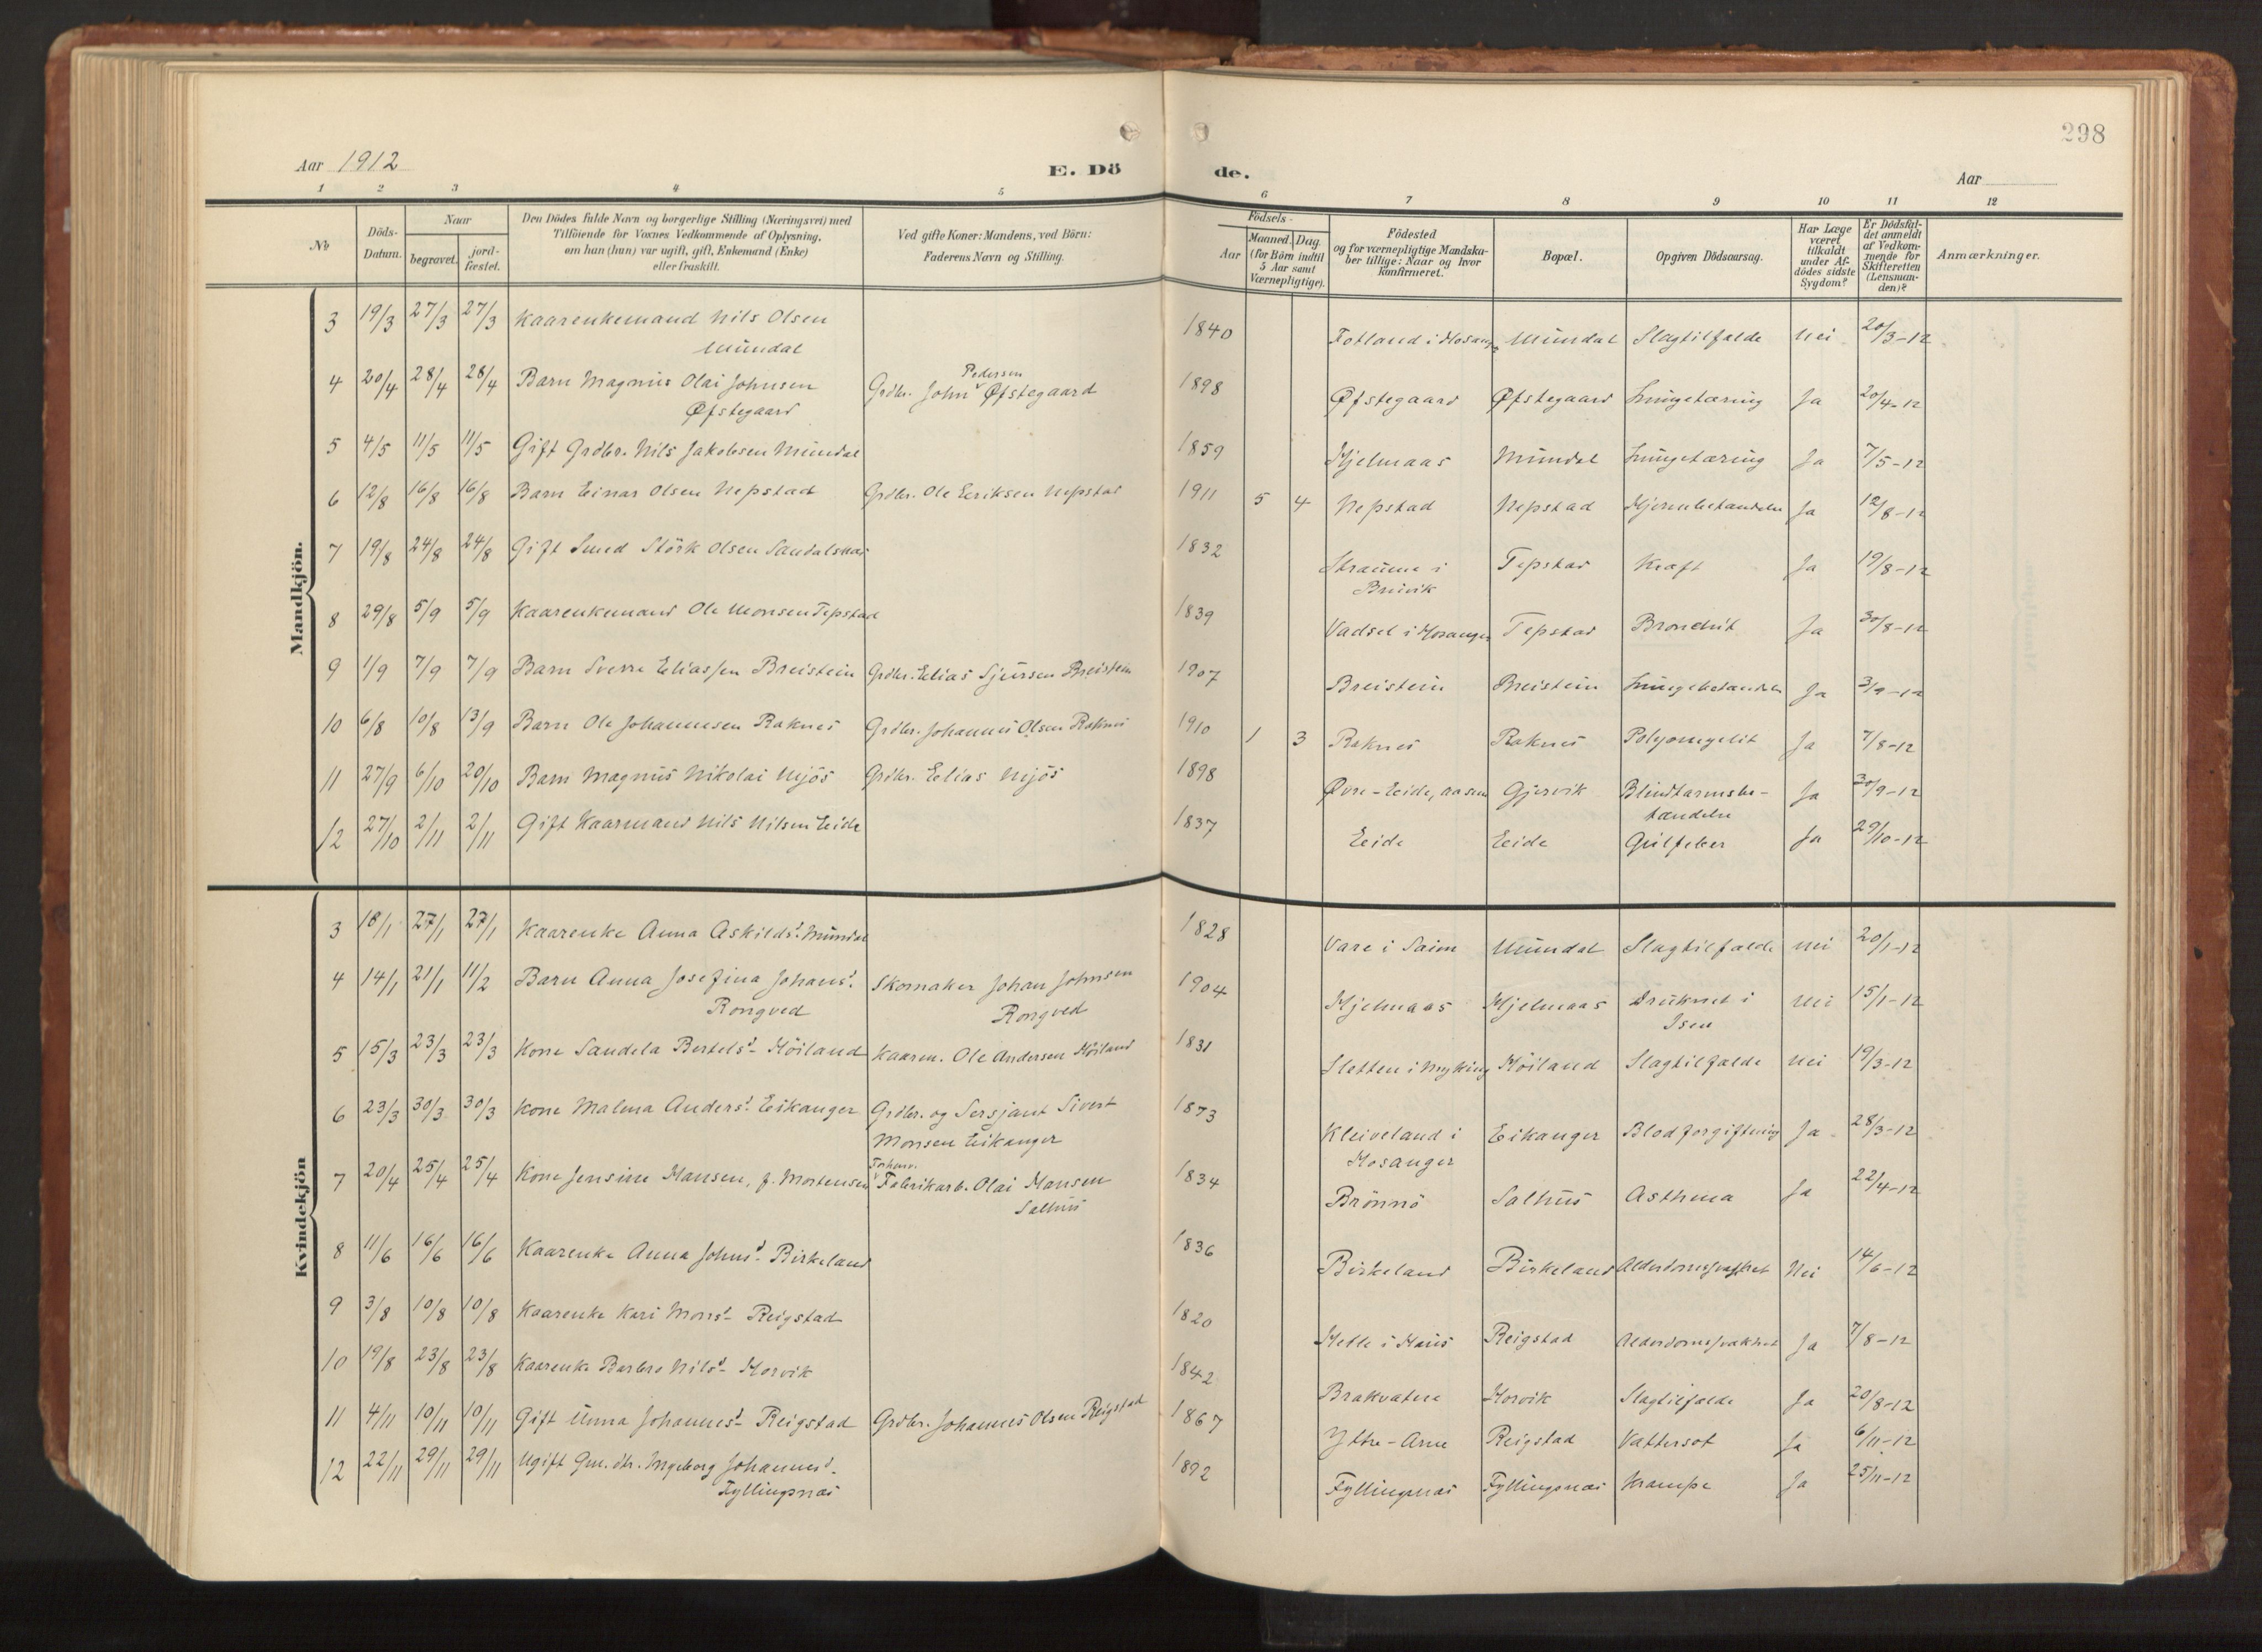 298
Aar 1912
E. Dö
de.
Aar
1 2 3 4 5 6 7 8 9 10 11 12
No
Döds-
Datum.
Naar
begravet.
jord-
fæstet.
Den Dödes fulde Navn og borgerlige Stilling (Næringsvei) med
Tilföiende for Voxnes Vedkommende af Oplysning,
om han (hun) var ugift, gift, Enkemand (Enke)
eller fraskilt.
Ved gifte Koner: Mandens, ved Börn:
Faderens Navn og Stilling.
Födsels-
Aar
Maaned. Dag.
(for Börn indtil
5 Aar samt
Værnepligtige).
Födested
og for værnepligtige Mandska-
ber tillige: Naar og hvor
konfirmeret.
Bopæl.
Opgiven Dödsaarsag.
Har Læge
været
tilkaldt
under Af-
dödes sidste
Sygdom?
Er Dödsfal-
det anmeldt
af Vedkom-
mende for
Skifteretten
(Lensman-
den)?
Anmærkninger.
Mandkjön.
3 19/3 27/3 27/3 Kaarenkemand Nils Olsen
Mundal
1840 Fotland i Hosang. Mundal Slagtilfælde Nei 20/3-12
4 20/4 28/4 28/4 Barn Magnus Olai Johnsen
Øfstegaard
Pedersen
Grdbr. John Øfstegaard 1898 Øfstegaard Øfstegaard Lungetæring Ja 20/4-12
5 4/5 11/5 11/5 Gift Grdbr. Nils Jakobsen Mundal 1859 Hjelmaas Mundal Lungetæring Ja 7/5-12
6 12/8 16/8 16/8 Barn Einar Olsen Nepstad Grdbr. Ole Eriksen Nepstad 1911 5 4 Nepstad Nepstad Hjernebetændelse Ja 12/8-12
7 19/8 24/8 24/8 Gift Smed Störk Olsen Sandalsnes 1832 Straume i
Bruvik
Tepstad Kræft Ja 19/8-12
8 29/8 5/9 5/9 Kaarenkemand Ole Monsen Tepstad 1839 Vadset i Hosanger Tepstad Bronchit Ja 30/8-12
9 1/9 7/9 7/9 Barn Sverre Eliassen Breistein Grdbr. Elias Sjursen Breistein 1907 Breistein Breistein Lungebetændelse Ja 3/9-12
10 6/8 10/8 13/9 Barn Ole Johannesen Raknes Grdbr. Johannes Olsen Raknes 1910 1 3 Raknes Raknes Polyomyelit Ja 7/8-12
11 27/9 6/10 20/10 Barn Magnus Nikolai Mjös Grdbr. Elias Mjös 1898 Øvre-Eide, Aasen Gjervik Blindtarmsbe-
tændelse
Ja 30/9-12
12 27/10 2/11 2/11 Gift Kaarmand Nils Nilsen Eide 1837 Eide Eide Gulfeber Ja 29/10-12
Kvindekjön
3 18/1 27/1 27/1 Kaarenke Anna Askildsd. Mundal 1828 Vare i Saim Mundal Slagtilfælde Nei 20/1-12
4 14/1 21/1 11/2 Barn Anna Josefina Johansd.
Rongved
Skomaker Johan Johnsen
Rongved
1904 Hjelmaas Hjelmaas Druknet i
Isen
Nei 15/1-12
5 15/3 23/3 23/3 Kone Sandela Bertelsd. Höiland Kaarm. Ole Andersen Höiland 1831 Sletten i Myking Höiland Slagtilfælde Nei 19/3-12
6 23/3 30/3 30/3 Kone Malena Andersd. Eikanger Grdbr. og Sersjant Sivert
Monsen Eikanger
1873 Kleiveland i
Hosanger
Eikanger Blodforgiftning Ja 28/3-12
7 20/4 25/4 25/4 Kone Jensine Hansen, f. Mortensen
Forhenv.
Fabrikarb. Olai Hansen
Salhus
1834 Brönnö Salhus Asthma Ja 22/4-12
8 11/6 16/6 16/6 Kaarenke Anna Johnsd. Birkeland 1836 Birkeland Birkeland Alderdomssvakhet Nei 14/6-12
9 3/8 10/8 10/8 Kaarenke Kari Monsd. Reigstad 1820 Hetle i Haus Reigstad Alderdomssvakhet Ja 7/8-12
10 19/8 23/8 23/8 Kaarenke Barbro Nilsd. Horvik 1842 Brakvatne Horvik Slagtilfælde Ja 20/8-12
11 4/11 10/11 10/11 Gift Unna Johannesd. Reigstad Grdbr. Johannes Olsen Reigstad 1867 Ytre-Arne Reigstad Vattersot Ja 6/11-12
12 22/11 29/11 29/11 Ugift Gm. dtr. Ingeborg Johannesd.
Fyllingsnæs
1892 Fyllingsnæs Fyllingsnæs Krampe Ja 25/11-12